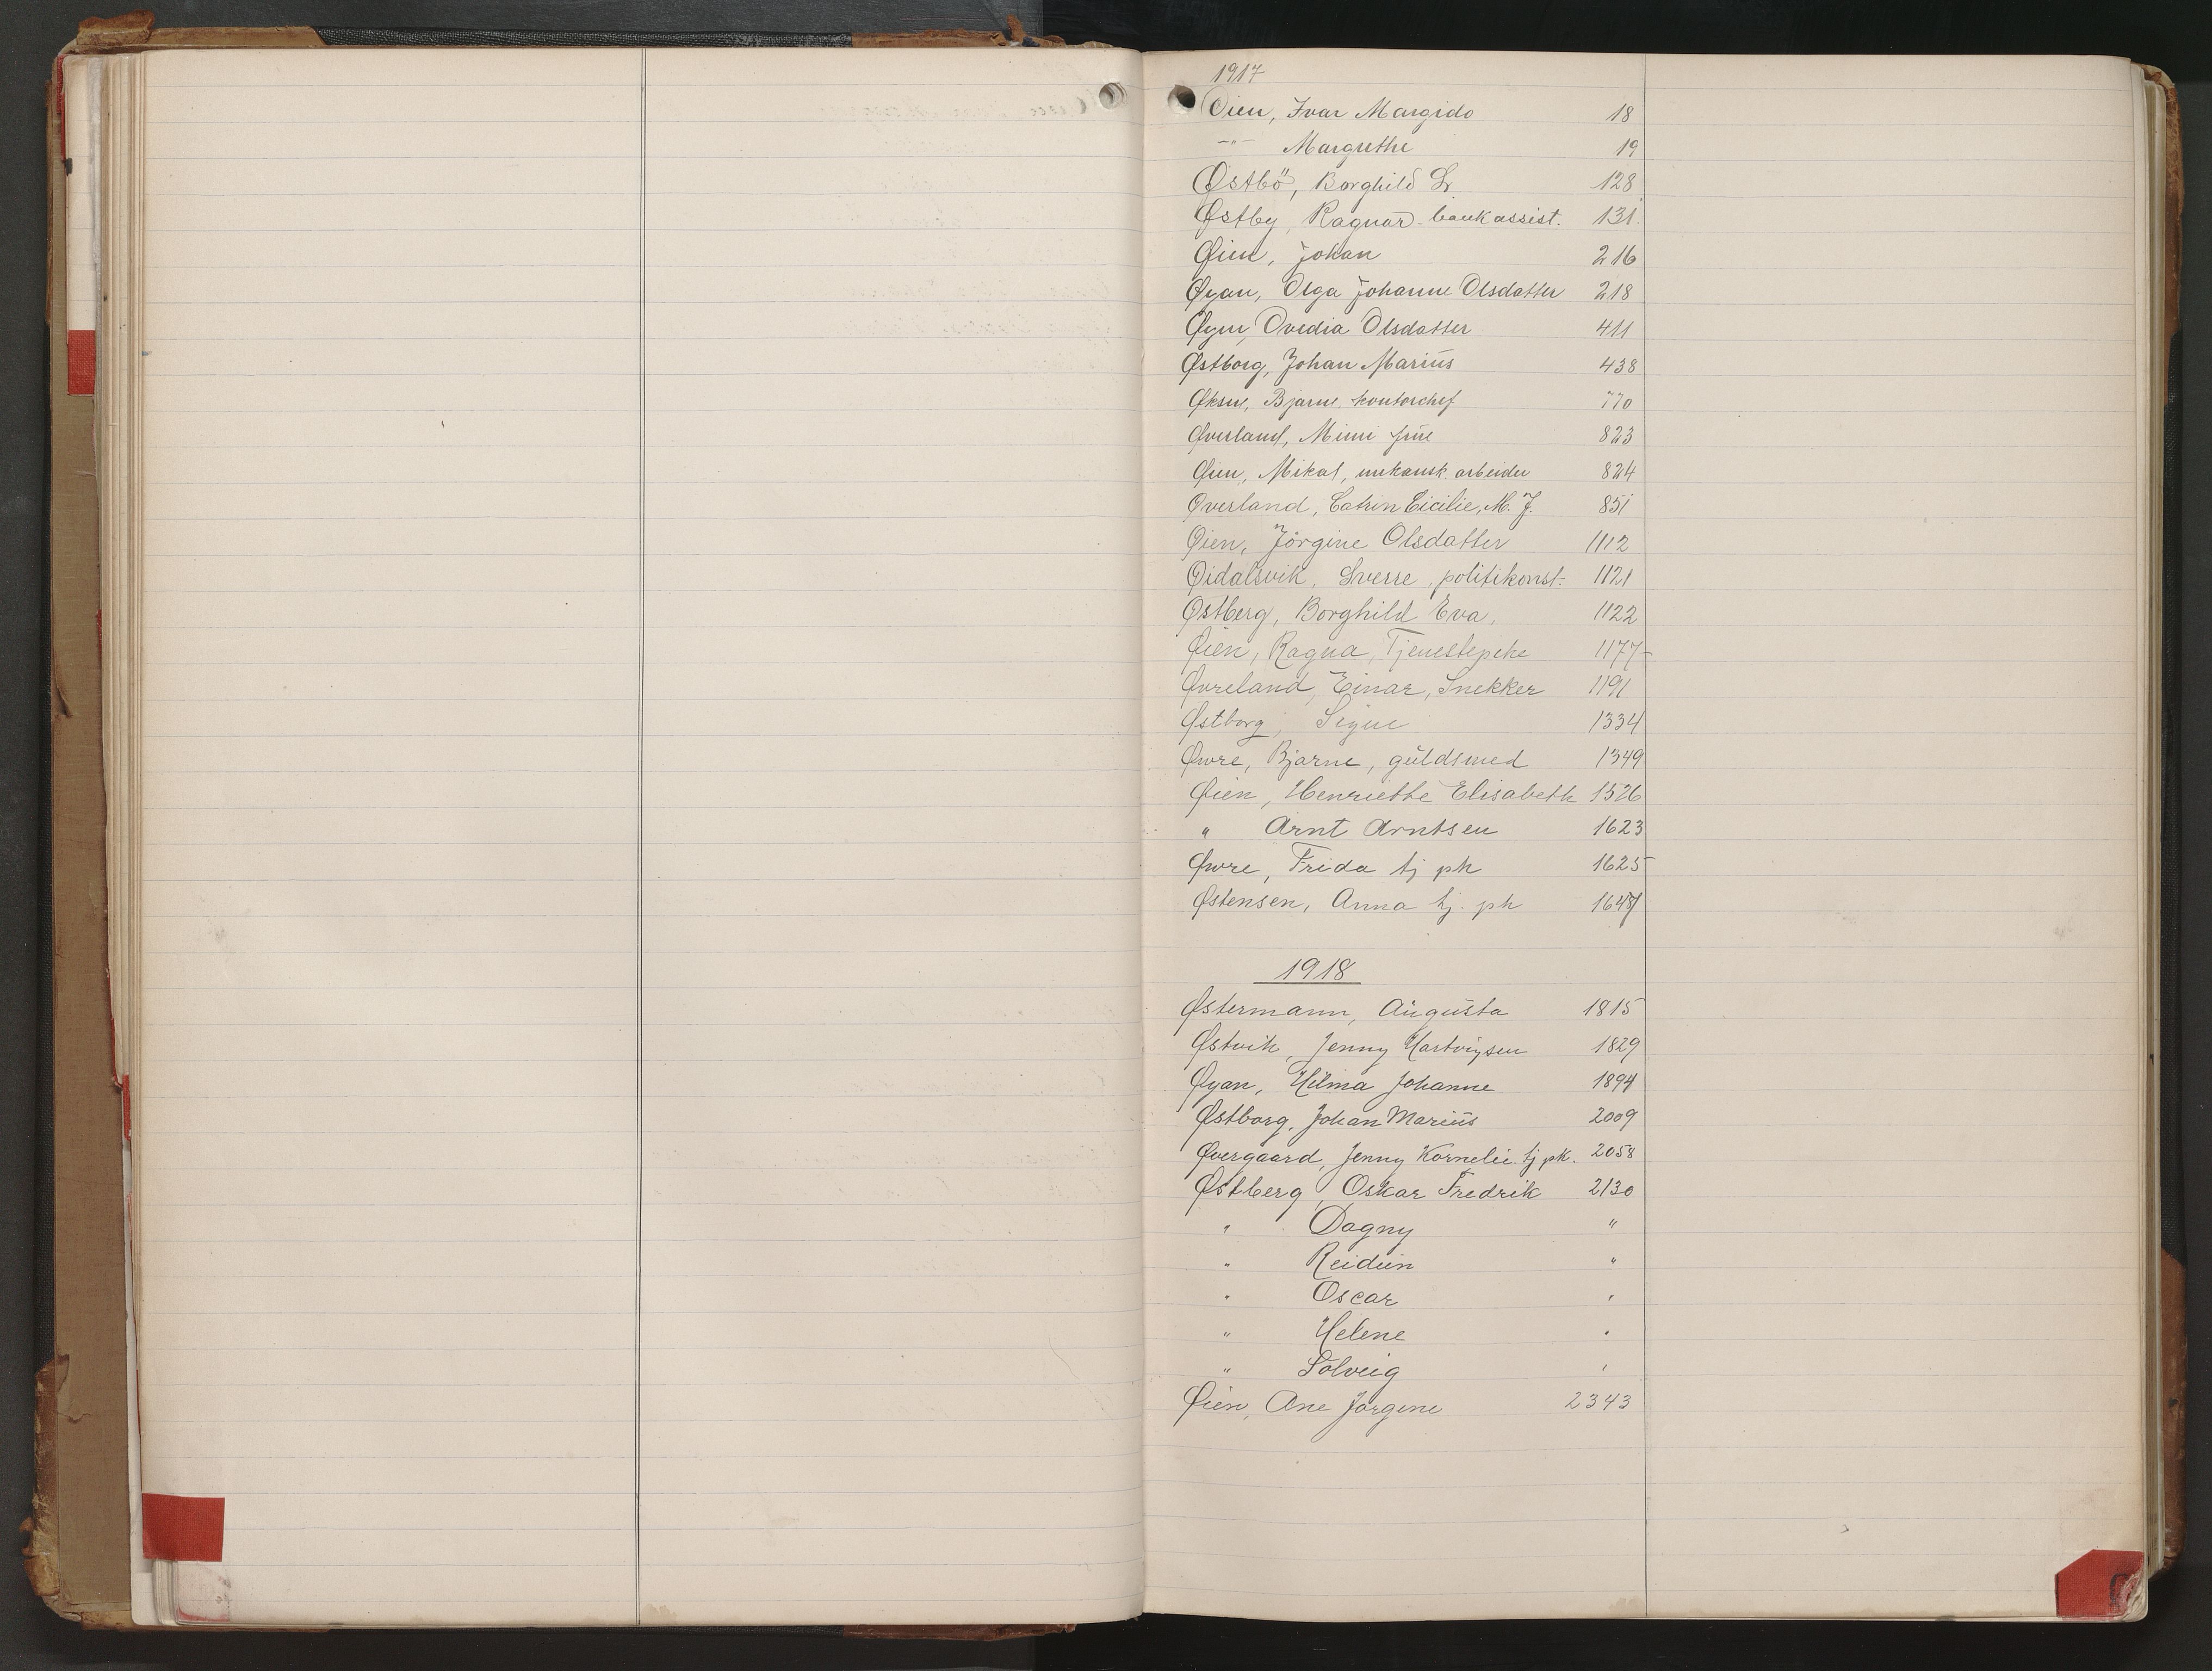 1917
Öien, Ivar Margido 18
-"- Margrethe 19
Østbö, Borghild Sr 128
Østby, Ragnar bankassist. 131
Øien, Johan 216
Øyan, Olga Johanne Olsdatter 218
Øyen, Ovedia Olsdatter 411
Østborg, Johan Marius 438
Øksne, Bjarne kontorchef 770
Øverland, Mimi frue 823
Øien, Mikal, mekansk arbeider 824
Øverland, Catrin Cicilie, M. J. 851
Øien, Jörgine Olsdatter 1112
Øidalsvik, Sverre, politikonst. 1121
Østberg, Borghild Eva, 1122
Øien, Ragna, Tjenestepike 1177
Øvreland, Einar, Snekker 1191
Østborg, Signe 1334
Øvre, Bjarne, guldsmed 1349
Øien, Henriette Elisabeth 1526
" Arnt Arntsen 1623
Øvre, Frida tj pk 1625
Østensen, Anna tj. pk
1918
Østermann, Augusta 1815
Østvik, Jenny Hartvigsen 1829
Øyan, Hilma Johanne 1894
Østborg, Johan Marius 2009
Øvergaard, Jenny Kornelie tj pk. 2058
Østberg, Oskar Fredrik 2130
" Dagny "
" Reidun "
" Oscar "
" Helene "
" Solveig "
Øien, Ane Jørgine 2343